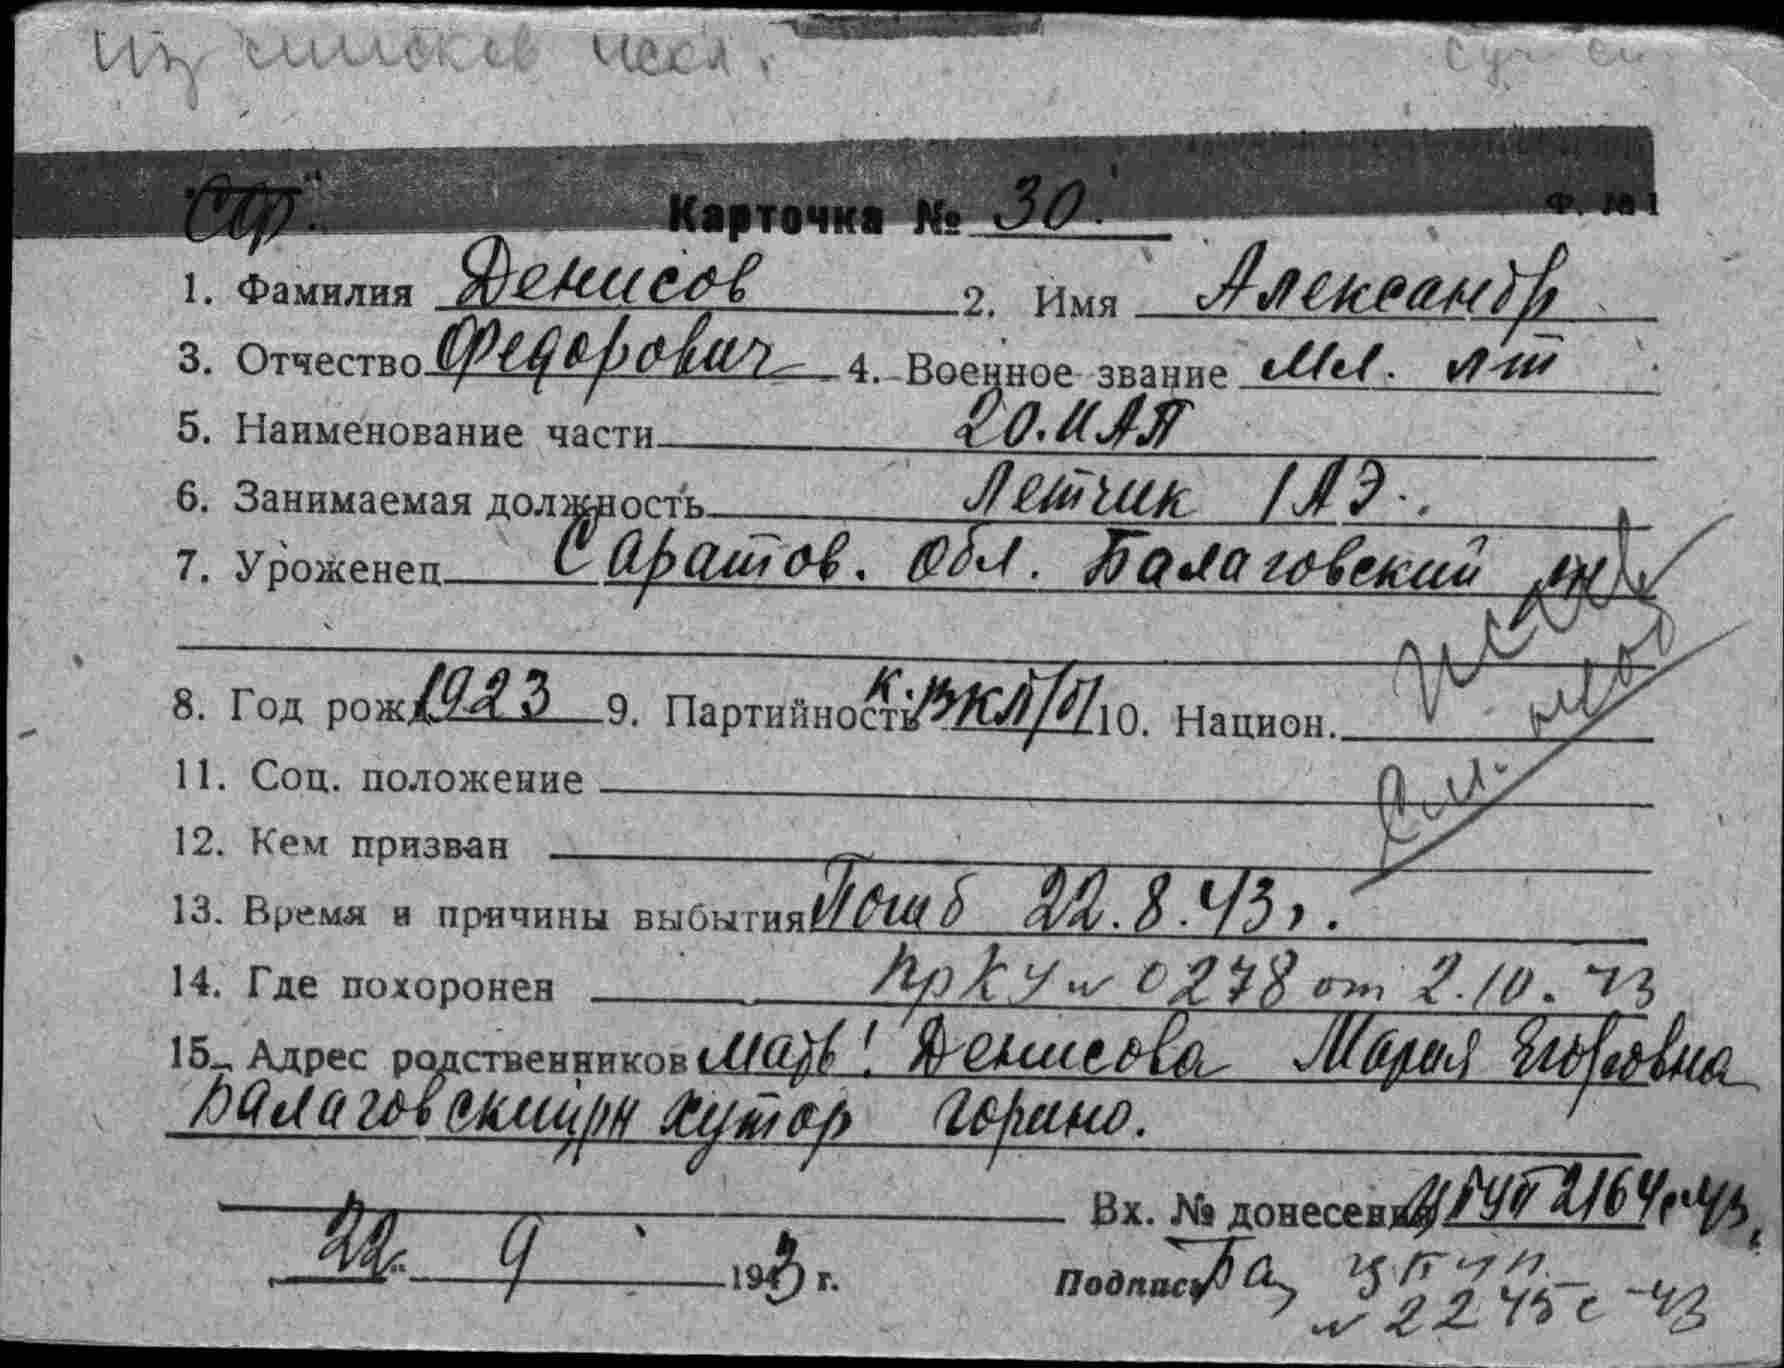 из списков искл.
"СФ"
Карточка № 30. Ф. № 1
1. Фамилия Денисов 2. Имя Александр
3. Отчество Федорович 4. Военное звание Мл. лт
5. Наименование части 20. ИАП
6. Занимаемая должность Летчик 1 АЭ.
7. Уроженец Саратов. обл. Балаговский рн
8. Год рожд. 1923 9. Партийность к. ВКП/б/ 10. Национ.
11. Соц. положение
12. Кем призван
13. Время и причины выбытия Погиб 22.8.43 г.
14. Где похоронен пр КУ № 0278 от 2.10.43
15. Адрес родственников мать! Денисова Мария Егоровна
Балаговский рн хутор горино.
Вх. № донесения 2164с-43
22. 9 1943 г. Подпись
№ 2245с-43